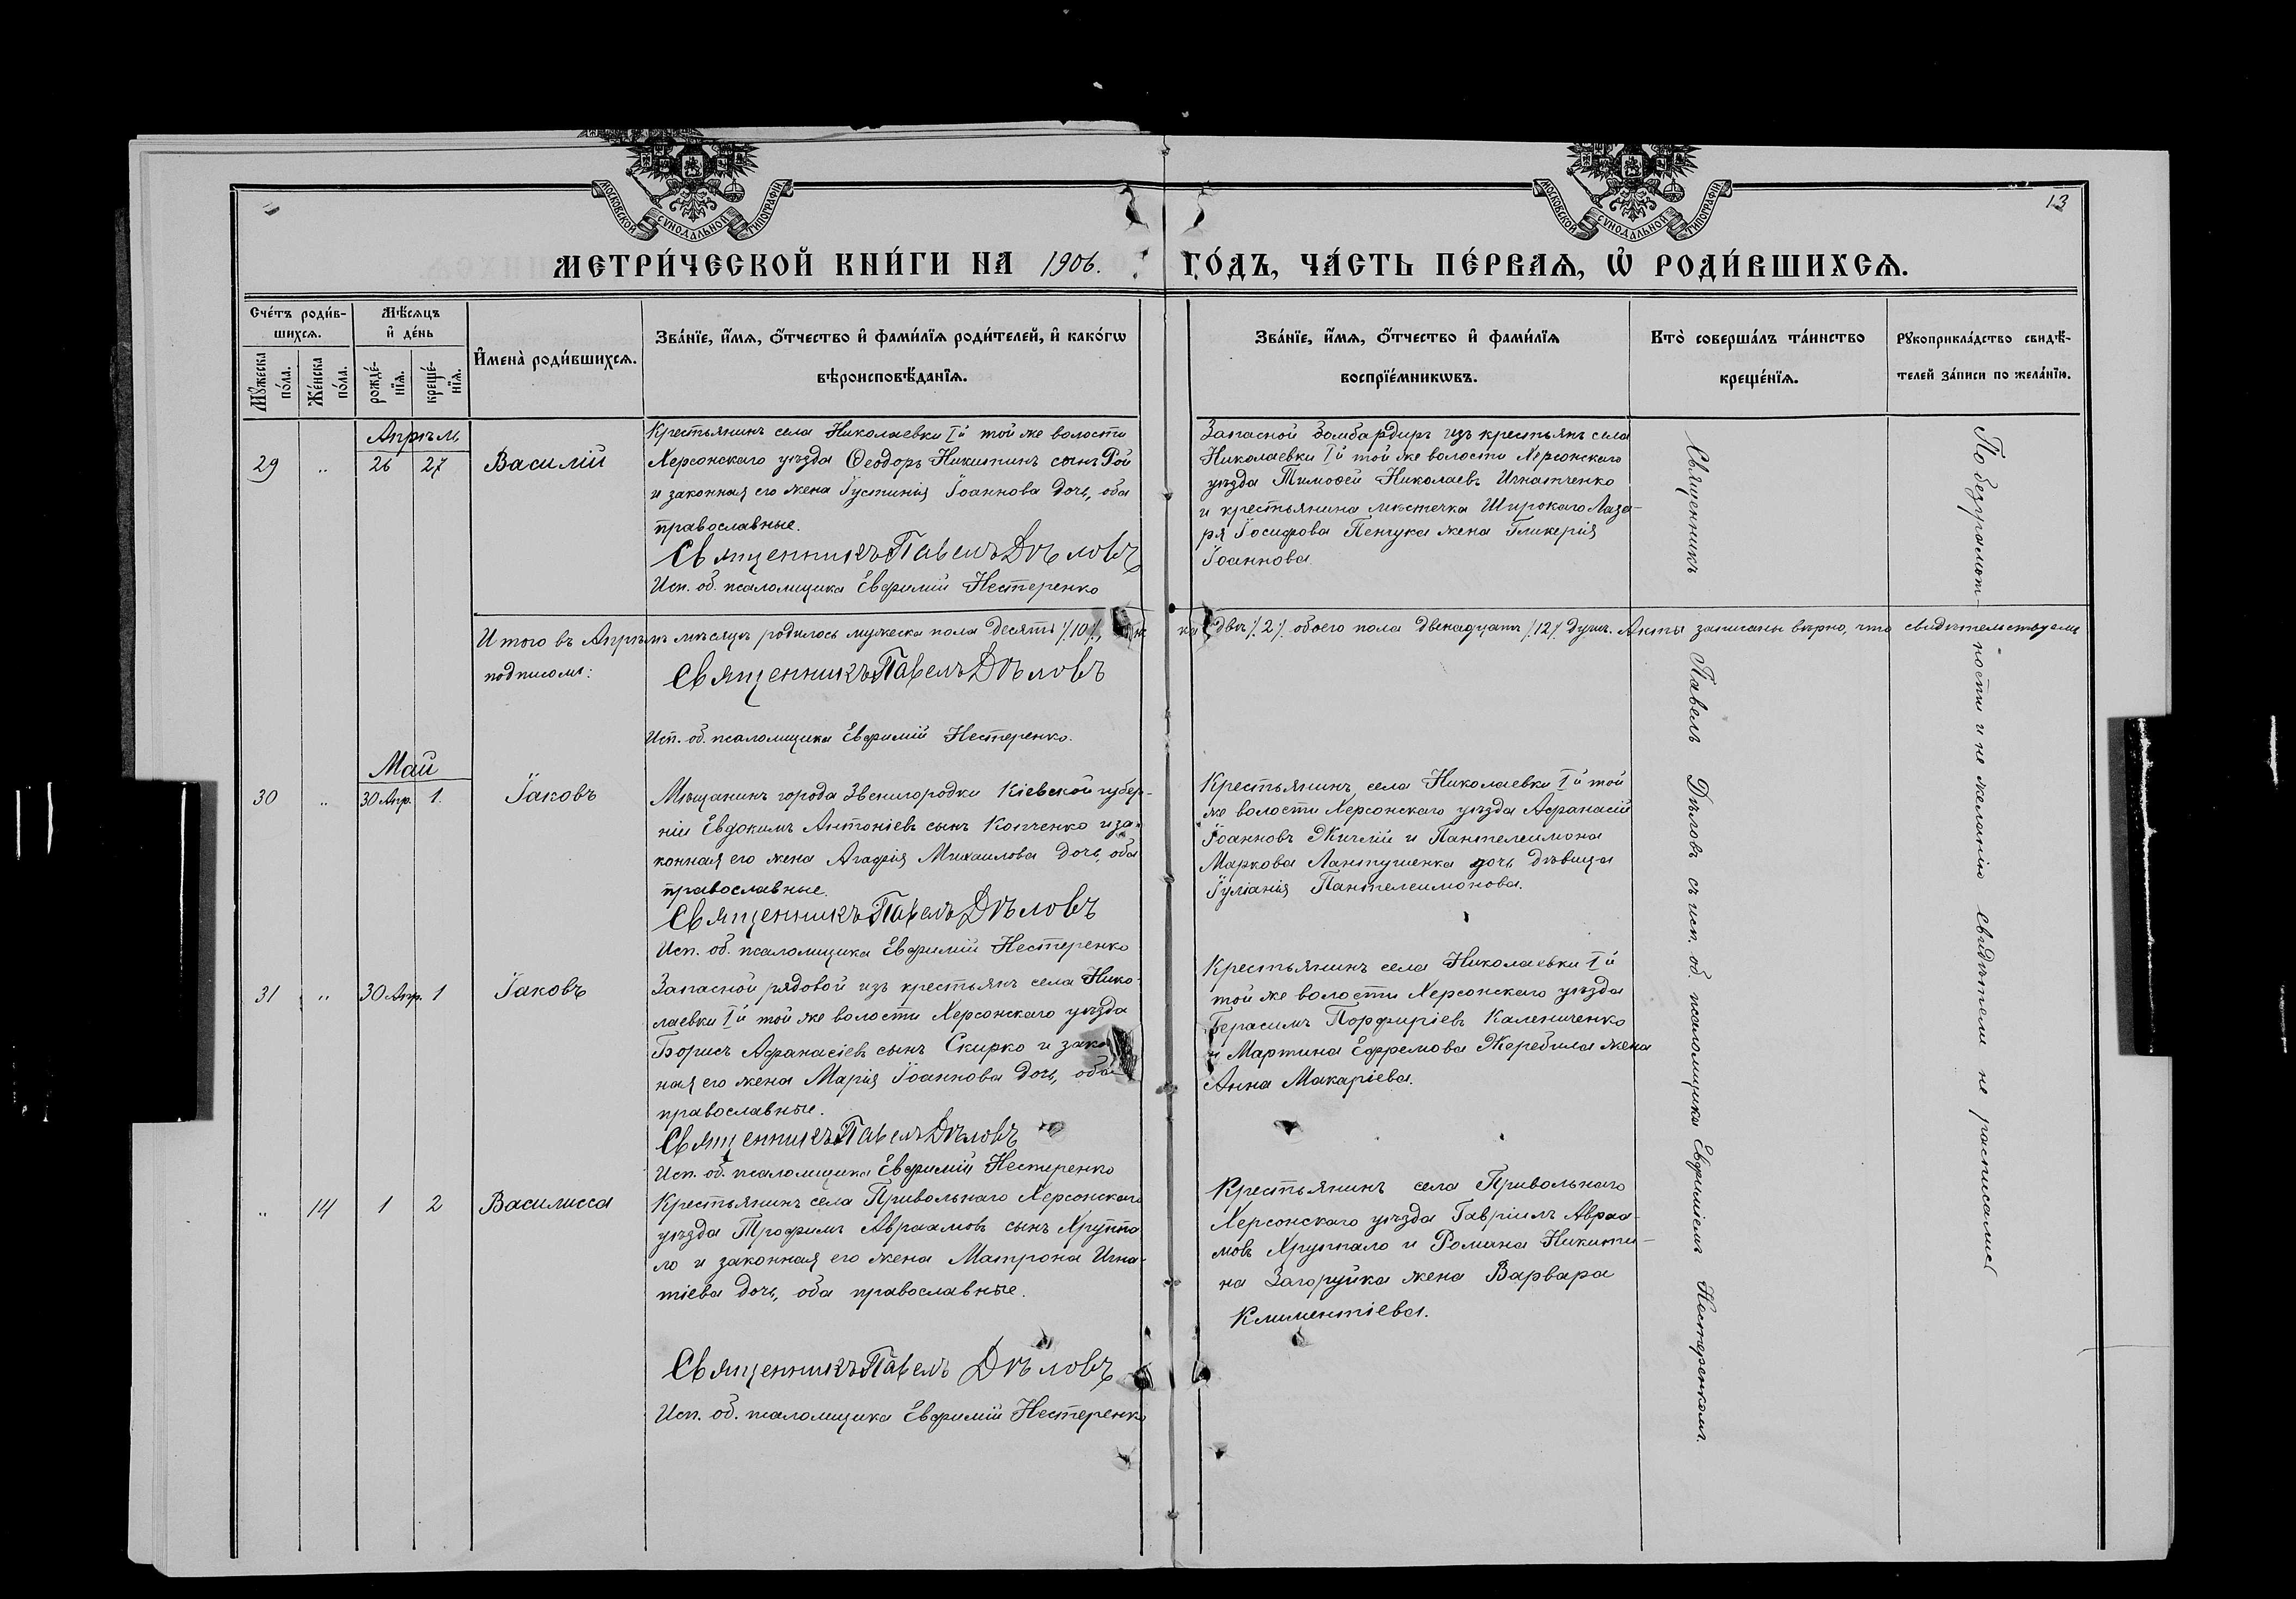 МОСКОВСКОЙ СѴНОДАЛЬНОЙ ТИПОГРАФІИ
МОСКОВСКОЙ СѴНОДАЛЬНОЙ ТИПОГРАФІИ
13
МЕТРИ́ЧЕСКОЙ КНИ́ГИ НА 1906. ГО́ДЪ, ЧА́СТЬ ПЕ́РВАѦ, Ѡ҆ РОДИ́ВШИХСѦ.
Сче́тъ роди́в-
шихсѧ.
Мꙋ́жеска
по́ла.
Же́нска
по́ла.
Мѣ́сѧцъ
и҆ де́нь
рожде́-
нїѧ.
креще́-
нїѧ.
И҆мена̀ роди́вшихсѧ.
Зва́нїе, и҆́мѧ, ѻ҆́тчество и҆ фами́лїѧ роди́телей, и҆ како́гѡ
вѣроисповѣ́данїѧ.
Зва́нїе, и҆́мѧ, ѻ҆́тчество и҆ фами́лїѧ
воспрїе́мникѡвъ.
Кто̀ соверша́лъ та́инство
креще́нїѧ.
Рꙋкоприкла́дство свидѣ́-
телей за́писи по жела́нїю.
Апрѣль
29 „ 26 27 Василій
Крестьянинъ села Николаевки Iй той же волости
Херсонскаго уѣзда Ѳеодоръ Никитинъ сынъ Рой
и законная его жена Іустинія Іоаннова дочь, оба
православные.
Священникъ Павелъ Дѣловъ
Исп. об. псаломщика Евфимій Нестеренко
Запасной Бомбардиръ изъ крестьянъ села
Николаевки Iй той же волости Херсонскаго
уѣзда Тимоѳей Николаевъ Игнатченко
и крестьянина мѣстечка Широкаго Лаза-
ря Іосифова Пенчука жена Гликерія
Іоаннова
Итого въ Апрѣлѣ мѣсяцѣ родилось мужеска пола десять /.10/., женска двѣ /.2/. обоего пола двенадцать /.12/. душъ. Акты записаны вѣрно, что свидѣтельствуемъ
подписомъ:
Священникъ Павелъ Дѣловъ
Исп. об. псаломщика Евфимій Нестеренко.
Май
30 „ 30 Апр. 1. Іаковъ
Мѣщанинъ города Звенигородки Кіевской губер-
ніи Евдокимъ Антоніевъ сынъ Копченко и за-
конная его жена Агафія Михаилова дочь, оба
православные.
Священникъ Павелъ Дѣловъ
Исп. об. псаломщика Евфимій Нестеренко
Крестьянинъ села Николаевки Iй той
же волости Херсонскаго уѣзда Афанасій
Іоанновъ Жичлій и Пантелеимона
Маркова Лантушенка дочь дѣвица
Іуліанія Пантелеимонова.
31 „ 30 Апр. 1 Іаковъ
Запасной рядовой изъ крестьянъ села Нико-
лаевки Iй той же волости Херсонскаго уѣзда
Борисъ Афанасіевъ сынъ Скирко и закон
ная его жена Марія Іоаннова дочь, оба
православные.
Священникъ Павелъ Дѣловъ
Исп. об. псаломщика Евфимій Нестеренко
Крестьянинъ села Николаевки Iй
той же волости Херсонскаго уѣзда
Герасимъ Порфиріевъ Калениченко
и Мартина Ефремова Жеребила жена
Анна Макаріева.
„ 14 1 2 Василисса
Крестьянинъ села Привольнаго Херсонскаго
уѣзда Трофимъ Авраамовъ сынъ Хруппа
ло и законная его жена Матрона Игна-
тіева дочь, оба православные.
Священникъ Павелъ Дѣловъ
Исп. об. псаломщика Евфимій Нестеренко
Крестьянинъ села Привольнаго
Херсонскаго уѣзда Гавріилъ Авраа-
мовъ Хруппало и Романа Никити-
на Загоруйка жена Варвара
Климентіева.
Священникъ Павелъ Дѣловъ съ исп. об. псаломщика Евфиміемъ Нестеренкомъ.
По безграмот-ности и не желанію свидѣтели не расписались